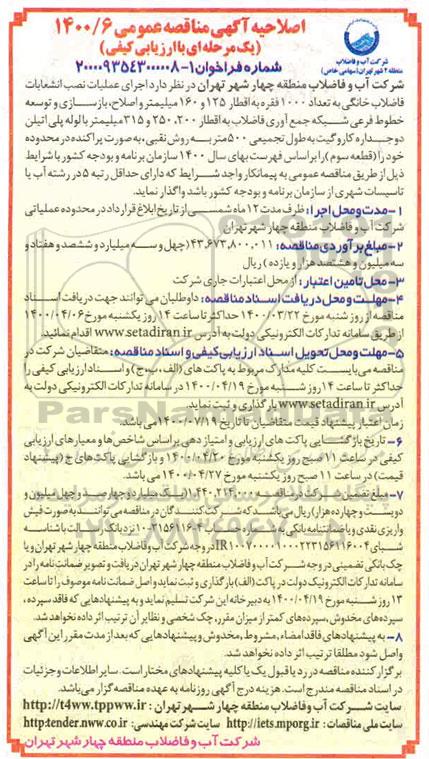 اصلاحیه آگهی مناقصه عمومی ۱۴۰۰/۶
(یک مرحله‌ای با ارزیابی کیفی)
شرکت آب و فاضلاب
منطقه ۴ شهر تهران (سهامی خاص)
شماره فراخوان ۱-۲۰۰۰۰۹۳۵۴۳۰۰۰۰۰۸
شرکت آب و فاضلاب منطقه چهار شهر تهران در نظر دارد اجرای عملیات نصب انشعابات
فاضلاب خانگی به تعداد ۱۰۰۰ فقره به اقطار ۱۲۵ و ۱۶۰ میلیمتر و اصلاح، بازسازی و توسعه
خطوط فرعی شبکه جمع آوری فاضلاب به اقطار ۲۰۰، ۲۵۰ و ۳۱۵ میلیمتر با لوله پلی اتیلن
دوجداره کاروگیت به طول تجمیعی ۵۰۰ متر به روش نقبی، به صورت پراکنده در محدوده
خود را (قطعه سوم) را بر اساس فهرست بهای سال ۱۴۰۰ سازمان برنامه و بودجه کشور با شرایط
ذیل از طریق مناقصه عمومی به پیمانکار واجد شرایط که دارای حداقل رتبه ۵ در رشته آب یا
تاسیسات شهری از سازمان برنامه و بودجه کشور باشد واگذار نماید.
۱- مدت و محل اجرا: ظرف مدت ۱۲ ماه شمسی از تاریخ ابلاغ قرارداد در محدوده عملیاتی
شرکت آب و فاضلاب منطقه چهار شهر تهران
۲- مبلغ برآوردی مناقصه: ۴۳,۶۷۳,۸۰۰,۰۱۱ (چهل و سه میلیارد و ششصد و هفتاد و
سه میلیون و هشتصد هزار و یازده) ریال
۳- محل تامین اعتبار: از محل اعتبارات جاری شرکت
۴- مهلت و محل دریافت اسناد مناقصه: داوطلبان می توانند جهت دریافت اسناد
مناقصه از روز شنبه مورخ ۱۴۰۰/۰۳/۲۲ حداکثر تا ساعت ۱۴ روز یکشنبه مورخ ۱۴۰۰/۰۴/۰۶
از طریق سامانه تدارکات الکترونیکی دولت به آدرس www.setadiran.ir اقدام نمائید.
۵- مهلت و محل تحویل اسناد ارزیابی کیفی و اسناد مناقصه: متقاضیان شرکت در
مناقصه می بایست کلیه مدارک مربوط به پاکت های (الف، ب، ج) و اسناد ارزیابی کیفی را
حداکثر تا ساعت ۱۴ روز شنبه مورخ ۱۴۰۰/۰۴/۱۹ در سامانه تدارکات الکترونیکی دولت به
آدرس www.setadiran.ir بارگذاری و ثبت نماید.
زمان اعتبار پیشنهاد قیمت متقاضیان تا تاریخ ۱۴۰۰/۰۷/۱۹ می باشد.
۶- تاریخ بازگشایی پاکت های ارزیابی و امتیازدهی بر اساس شاخص‌ها و معیارهای ارزیابی
کیفی در ساعت ۱۱ صبح روز یکشنبه مورخ ۱۴۰۰/۰۴/۲۰ و بازگشایی پاکت های ج (پیشنهاد
قیمت) در ساعت ۱۱ صبح روز یکشنبه مورخ ۱۴۰۰/۰۴/۲۷ می باشد.
۷- مبلغ تضمین شرکت در مناقصه ۱,۴۴۰,۲۱۴,۰۰۰ (یک میلیارد و چهارصد و چهل میلیون و
دویست و چهارده هزار) ریال می باشد که شرکت کنندگان در مناقصه می توانند به صورت فیش
واریزی نقدی و یا ضمانتنامه بانکی به شماره حساب نزد بانک رسالت با شناسه
شبای در وجه شرکت آب و فاضلاب منطقه چهار شهر تهران و یا
چک بانکی تضمینی در وجه شرکت آب و فاضلاب منطقه چهار شهر تهران دریافت و تصویر ضمانت نامه را در
سامانه تدارکات الکترونیک دولت در پاکت (الف) بارگذاری و ثبت نماید و اصل ضمانت نامه موصوف را تا ساعت
۱۳ روز شنبه مورخ ۱۴۰۰/۰۴/۱۹ به دبیرخانه این شرکت تسلیم نماید و به پیشنهادهایی که فاقد سپرده،
سپرده‌های مخدوش، سپرده‌های کمتر از میزان مقرر، چک شخصی و نظایر آن ترتیب اثر داده نخواهد شد.
۸- به پیشنهادهای فاقد امضاء، مشروط، مخدوش و پیشنهادهایی که بعد از مدت مقرر این آگهی
واصل شود مطلقا ترتیب اثر داده نخواهد شد.
برگزارکننده مناقصه در رد یا قبول یک یا کلیه پیشنهادهای مختار است. سایر اطلاعات و جزئیات
در اسناد مناقصه مندرج است. هزینه درج آگهی روزنامه به عهده مناقصه گزار می باشد.
سایت شرکت آب و فاضلاب منطقه چهار شهر تهران: http://t4ww.tpww.ir
سایت ملی مناقصات: http://iets.mporg.ir سایت شرکت مهندسی: http:tender.nww.co.ir
شرکت آب و فاضلاب منطقه چهار شهر تهران
ParsNamadData